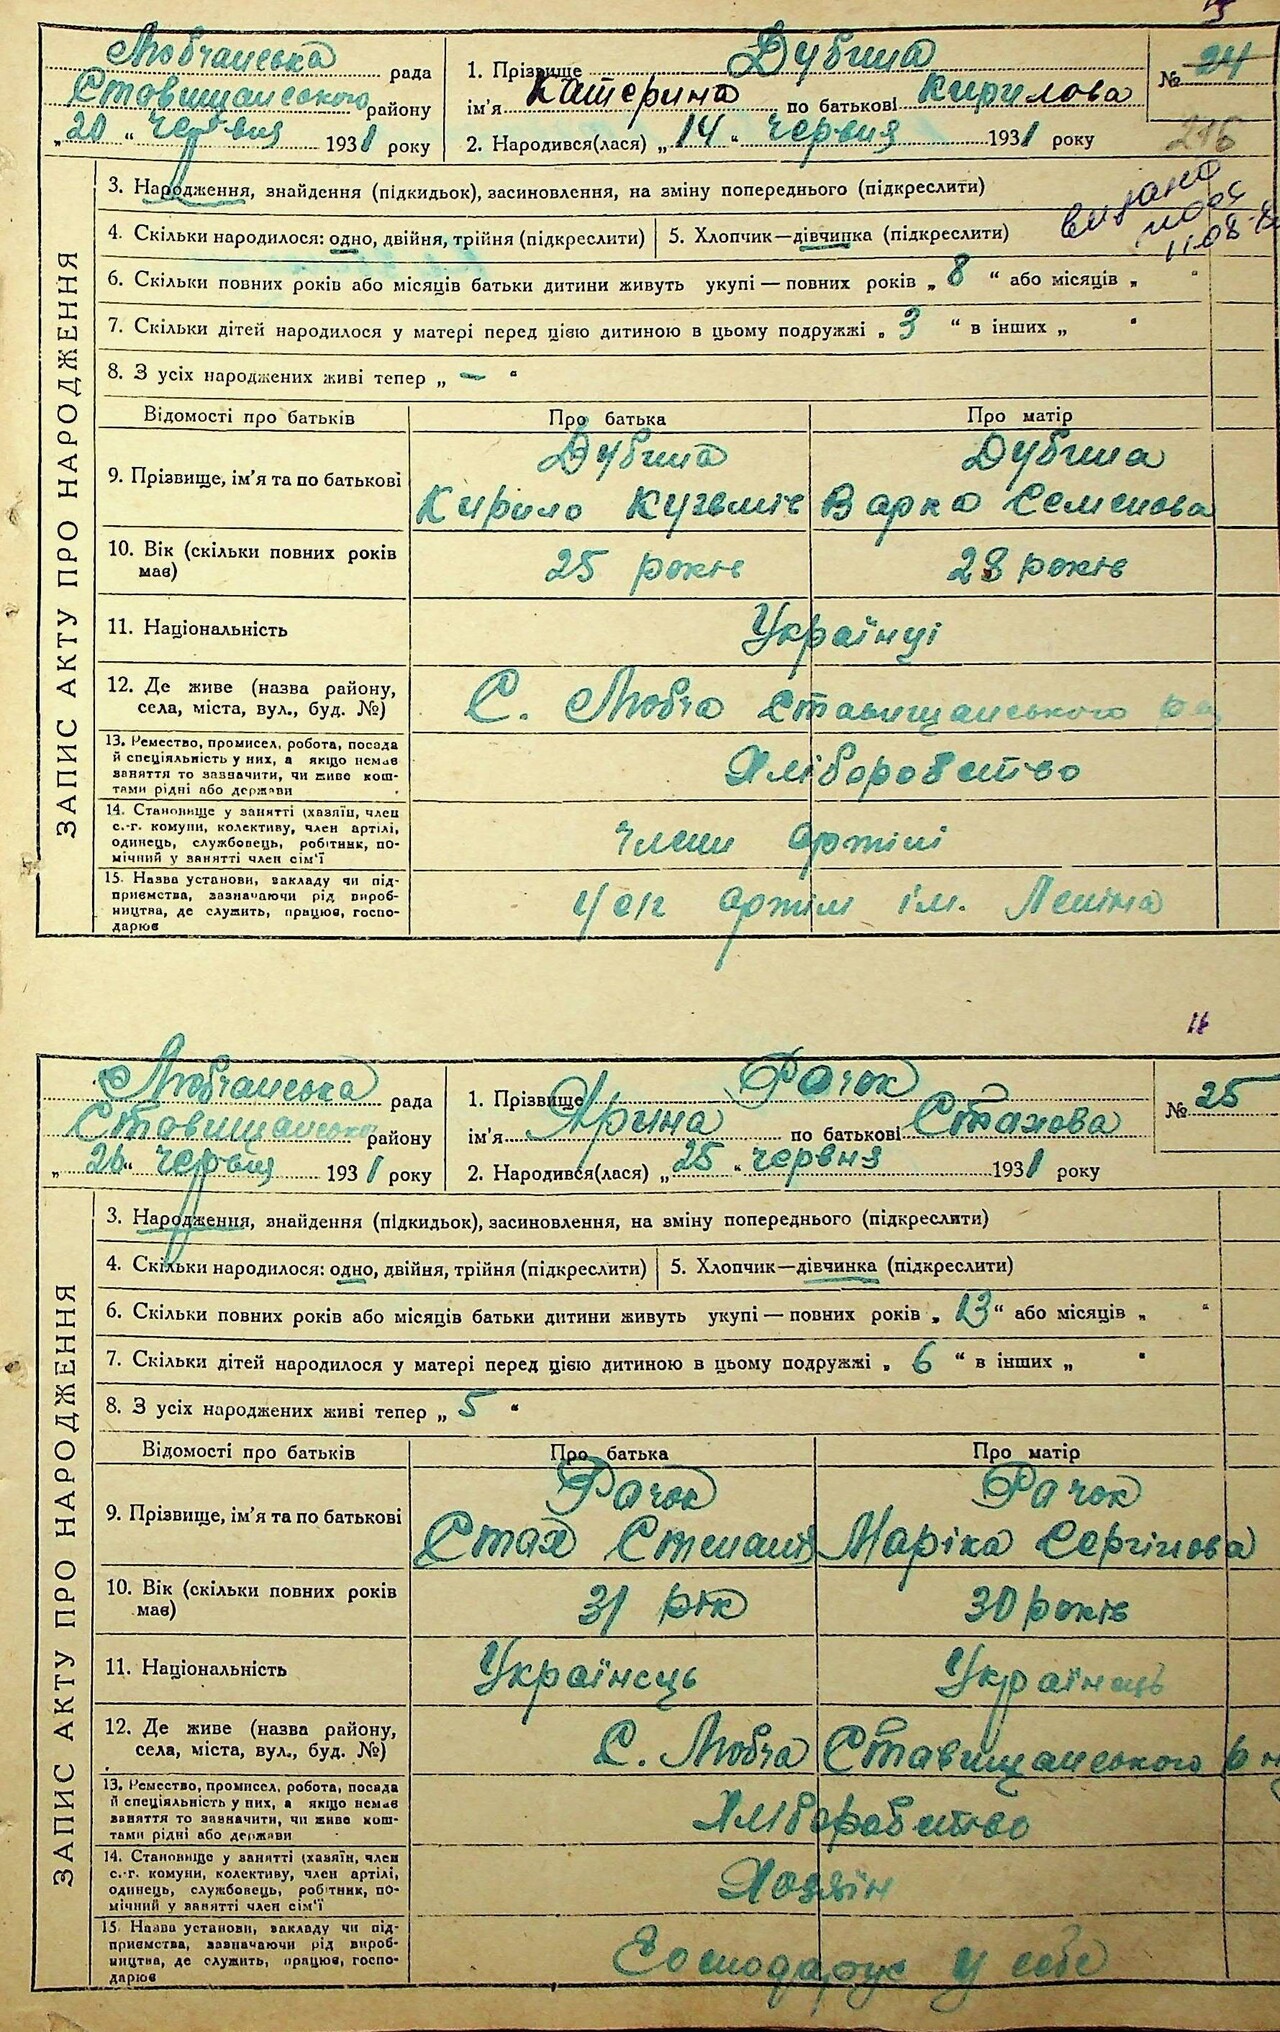 15
Любчанська рада
Ставищанського району
„20“ червня 1931 року
1. Прізвище Дубина
ім'я Катерина по батькові Кирилова
2. Народився(лася) „14“ червня 1931 року
№ 24
216
видано
11-08
ЗАПИС АКТУ ПРО НАРОДЖЕННЯ
3. Народження, знайдення (підкидьок), засиновлення, на зміну попереднього (підкреслити)
4. Скільки народилося: одно, двійня, трійня (підкреслити) 5. Хлопчик—дівчинка (підкреслити)
6. Скільки повних років або місяців батьки дитини живуть укупі — повних років „ 8 “ або місяців „ “
7. Скільки дітей народилося у матері перед цією дитиною в цьому подружжі „ 3 “ в інших „ “
8. З усіх народжених живі тепер „ — “
Відомості про батьків Про батька Про матір
9. Прізвище, ім'я та по батькові
Дубина Дубина
Кирило Кузьміч Варка Семенова
10. Вік (скільки повних років
має)
25 років 28 років
11. Національність Українці
12. Де живе (назва району,
села, міста, вул., буд. №)
С. Любча Ставищанського р
13. Ремество, промисел, робота, посада
й спеціяльність у них, а якщо немає
заняття то зазначити, чи живе кош-
тами рідні або держави
Хліборобство
14. Становище у занятті (хазяїн, член
с.-г. комуни, колективу, член артілі,
одинець, службовець, робітник, по-
мічний у занятті член сім'ї
члени артілі
15. Назва установи, закладу чи під-
приємства, зазначаючи рід вироб-
ництва, де служить, працює, госпо-
дарює
артіль ім. Леніна
16
Любчанська рада
Ставищанського району
„26“ червня 1931 року
1. Прізвище Рачок
ім'я Ярина по батькові Стахова
2. Народився(лася) „25“ червня 1931 року
№ 25
ЗАПИС АКТУ ПРО НАРОДЖЕННЯ
3. Народження, знайдення (підкидьок), засиновлення, на зміну попереднього (підкреслити)
4. Скільки народилося: одно, двійня, трійня (підкреслити) 5. Хлопчик—дівчинка (підкреслити)
6. Скільки повних років або місяців батьки дитини живуть укупі — повних років „ 13 “ або місяців „ “
7. Скільки дітей народилося у матері перед цією дитиною в цьому подружжі „ 6 “ в інших „ “
8. З усіх народжених живі тепер „ 5 “
Відомості про батьків Про батька Про матір
9. Прізвище, ім'я та по батькові
Рачок Рачок
Стах Степанів Маріка Сергінова
10. Вік (скільки повних років
має)
31 рік 30 років
11. Національність Українець Українець
12. Де живе (назва району,
села, міста, вул., буд. №)
С. Любча Ставищанського р н
13. Ремество, промисел, робота, посада
й спеціяльність у них, а якщо немає
заняття то зазначити, чи живе кош-
тами рідні або держави
Хліборобство
14. Становище у занятті (хазяїн, член
с.-г. комуни, колективу, член артілі,
одинець, службовець, робітник, по-
мічний у занятті член сім'ї
Хозяїн
15. Назва установи, закладу чи під-
приємства, зазначаючи рід вироб-
ництва, де служить, працює, госпо-
дарює
Господарує у себе